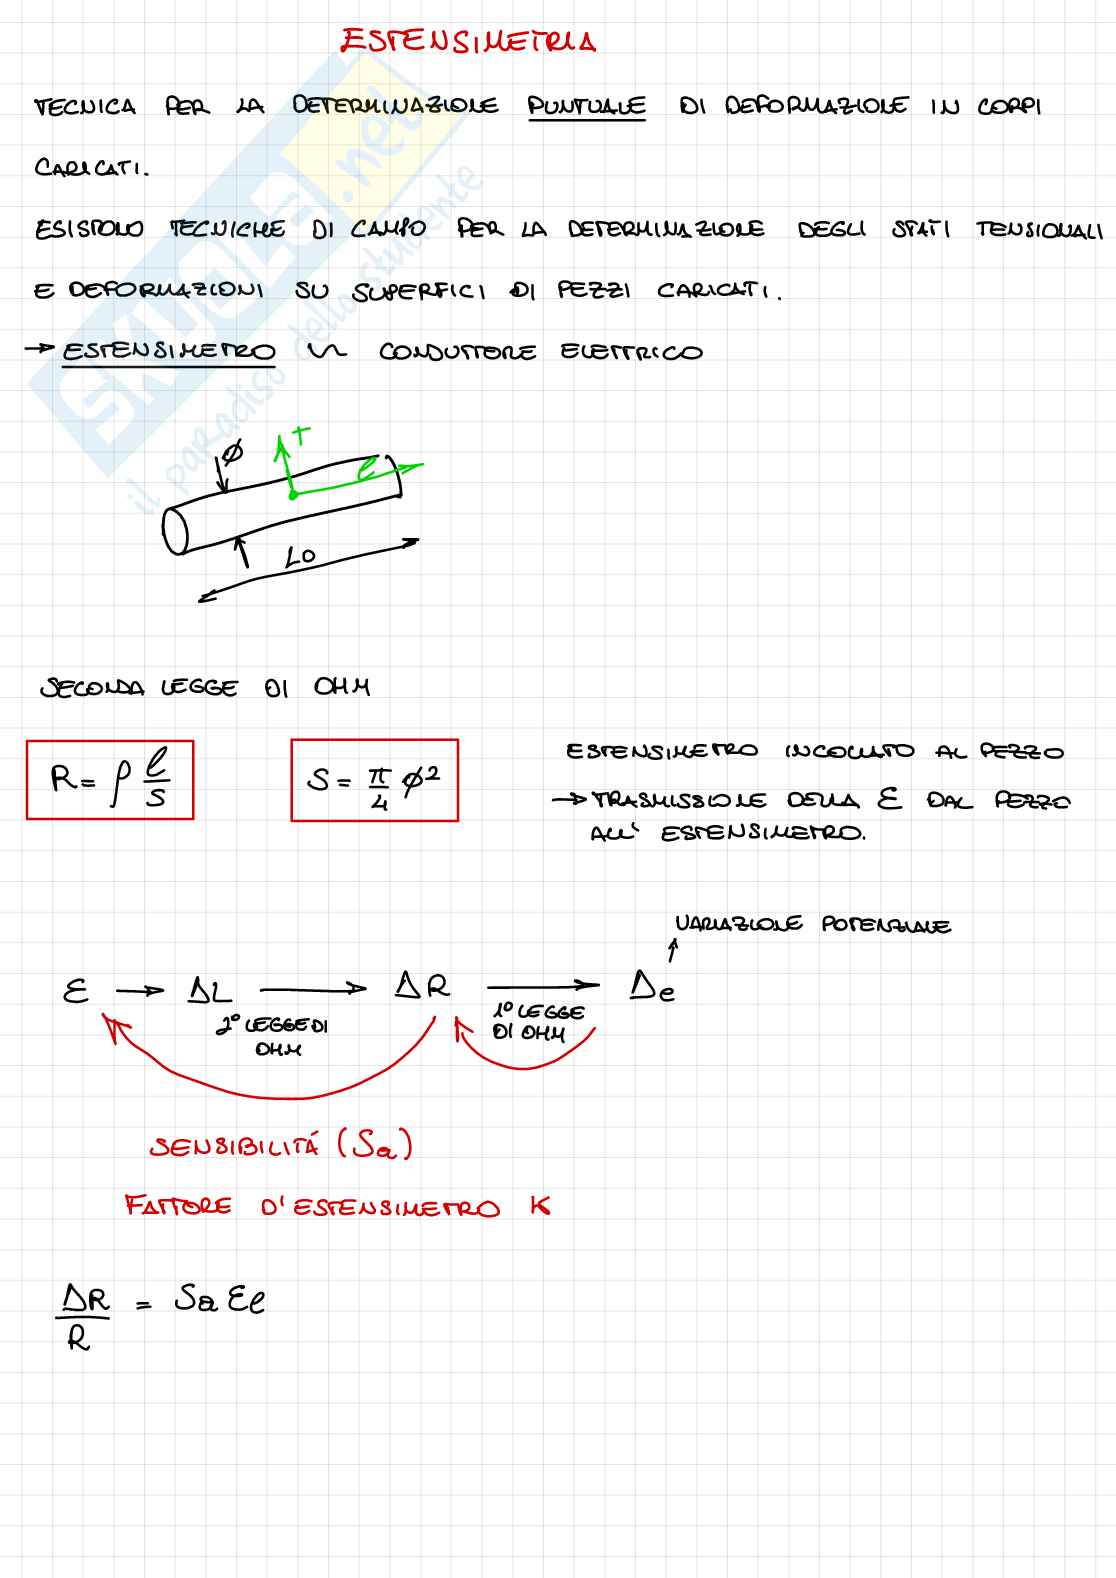 ESTENSIMETRIA
TECNICA PER LA DETERMINAZIONE PUNTUALE DI DEFORMAZIONE IN CORPI
CARICATI.
ESISTONO TECNICHE DI CAMPO PER LA DETERMINAZIONE DEGLI STATI TENSIONALI
E DEFORMAZIONI SU SUPERFICI DI PEZZI CARICATI.
→ ESTENSIMETRO ∼ CONDUTTORE ELETTRICO
SKUOLA.net
il paradiso dello studente
ϕ
T
ℓ
L0
SECONDA LEGGE DI OHM
R = ρ ℓ/S
S = π/4 ϕ²
ESTENSIMETRO INCOLLATO AL PEZZO
→ TRASMISSIONE DELLA ε DAL PEZZO
ALL' ESTENSIMETRO.
VARIAZIONE POTENZIALE
ε → ΔL → ΔR → Δe
2° LEGGE DI
OHM
1° LEGGE
DI OHM
SENSIBILITÁ (Sa)
FATTORE D'ESTENSIMETRO K
ΔR/R = Sa εℓ